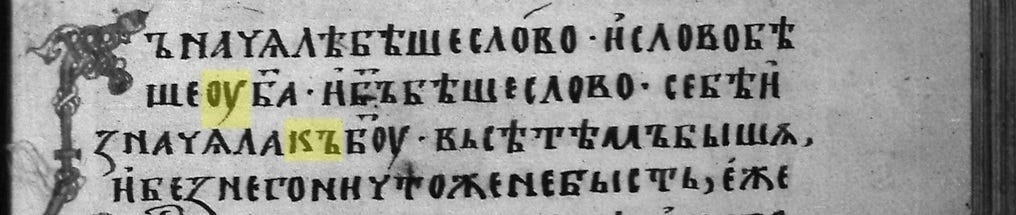 ВЪНАЧѦЛѢБѢШЕСЛОВО · И҆СЛОВОБѢ
ШЕОУБ҃А · И҆Б҃ЪБѢШЕСЛОВО · СЕБѢИ҆
ꙁНАЧѦЛАКЪБ҃ОУ · ВЬСѢТѢМЪБЫШѦ,
И҆БЕꙁНЕГОНИЧТОЖЕНЕБЫСТЬ, Е҆ЖЕ